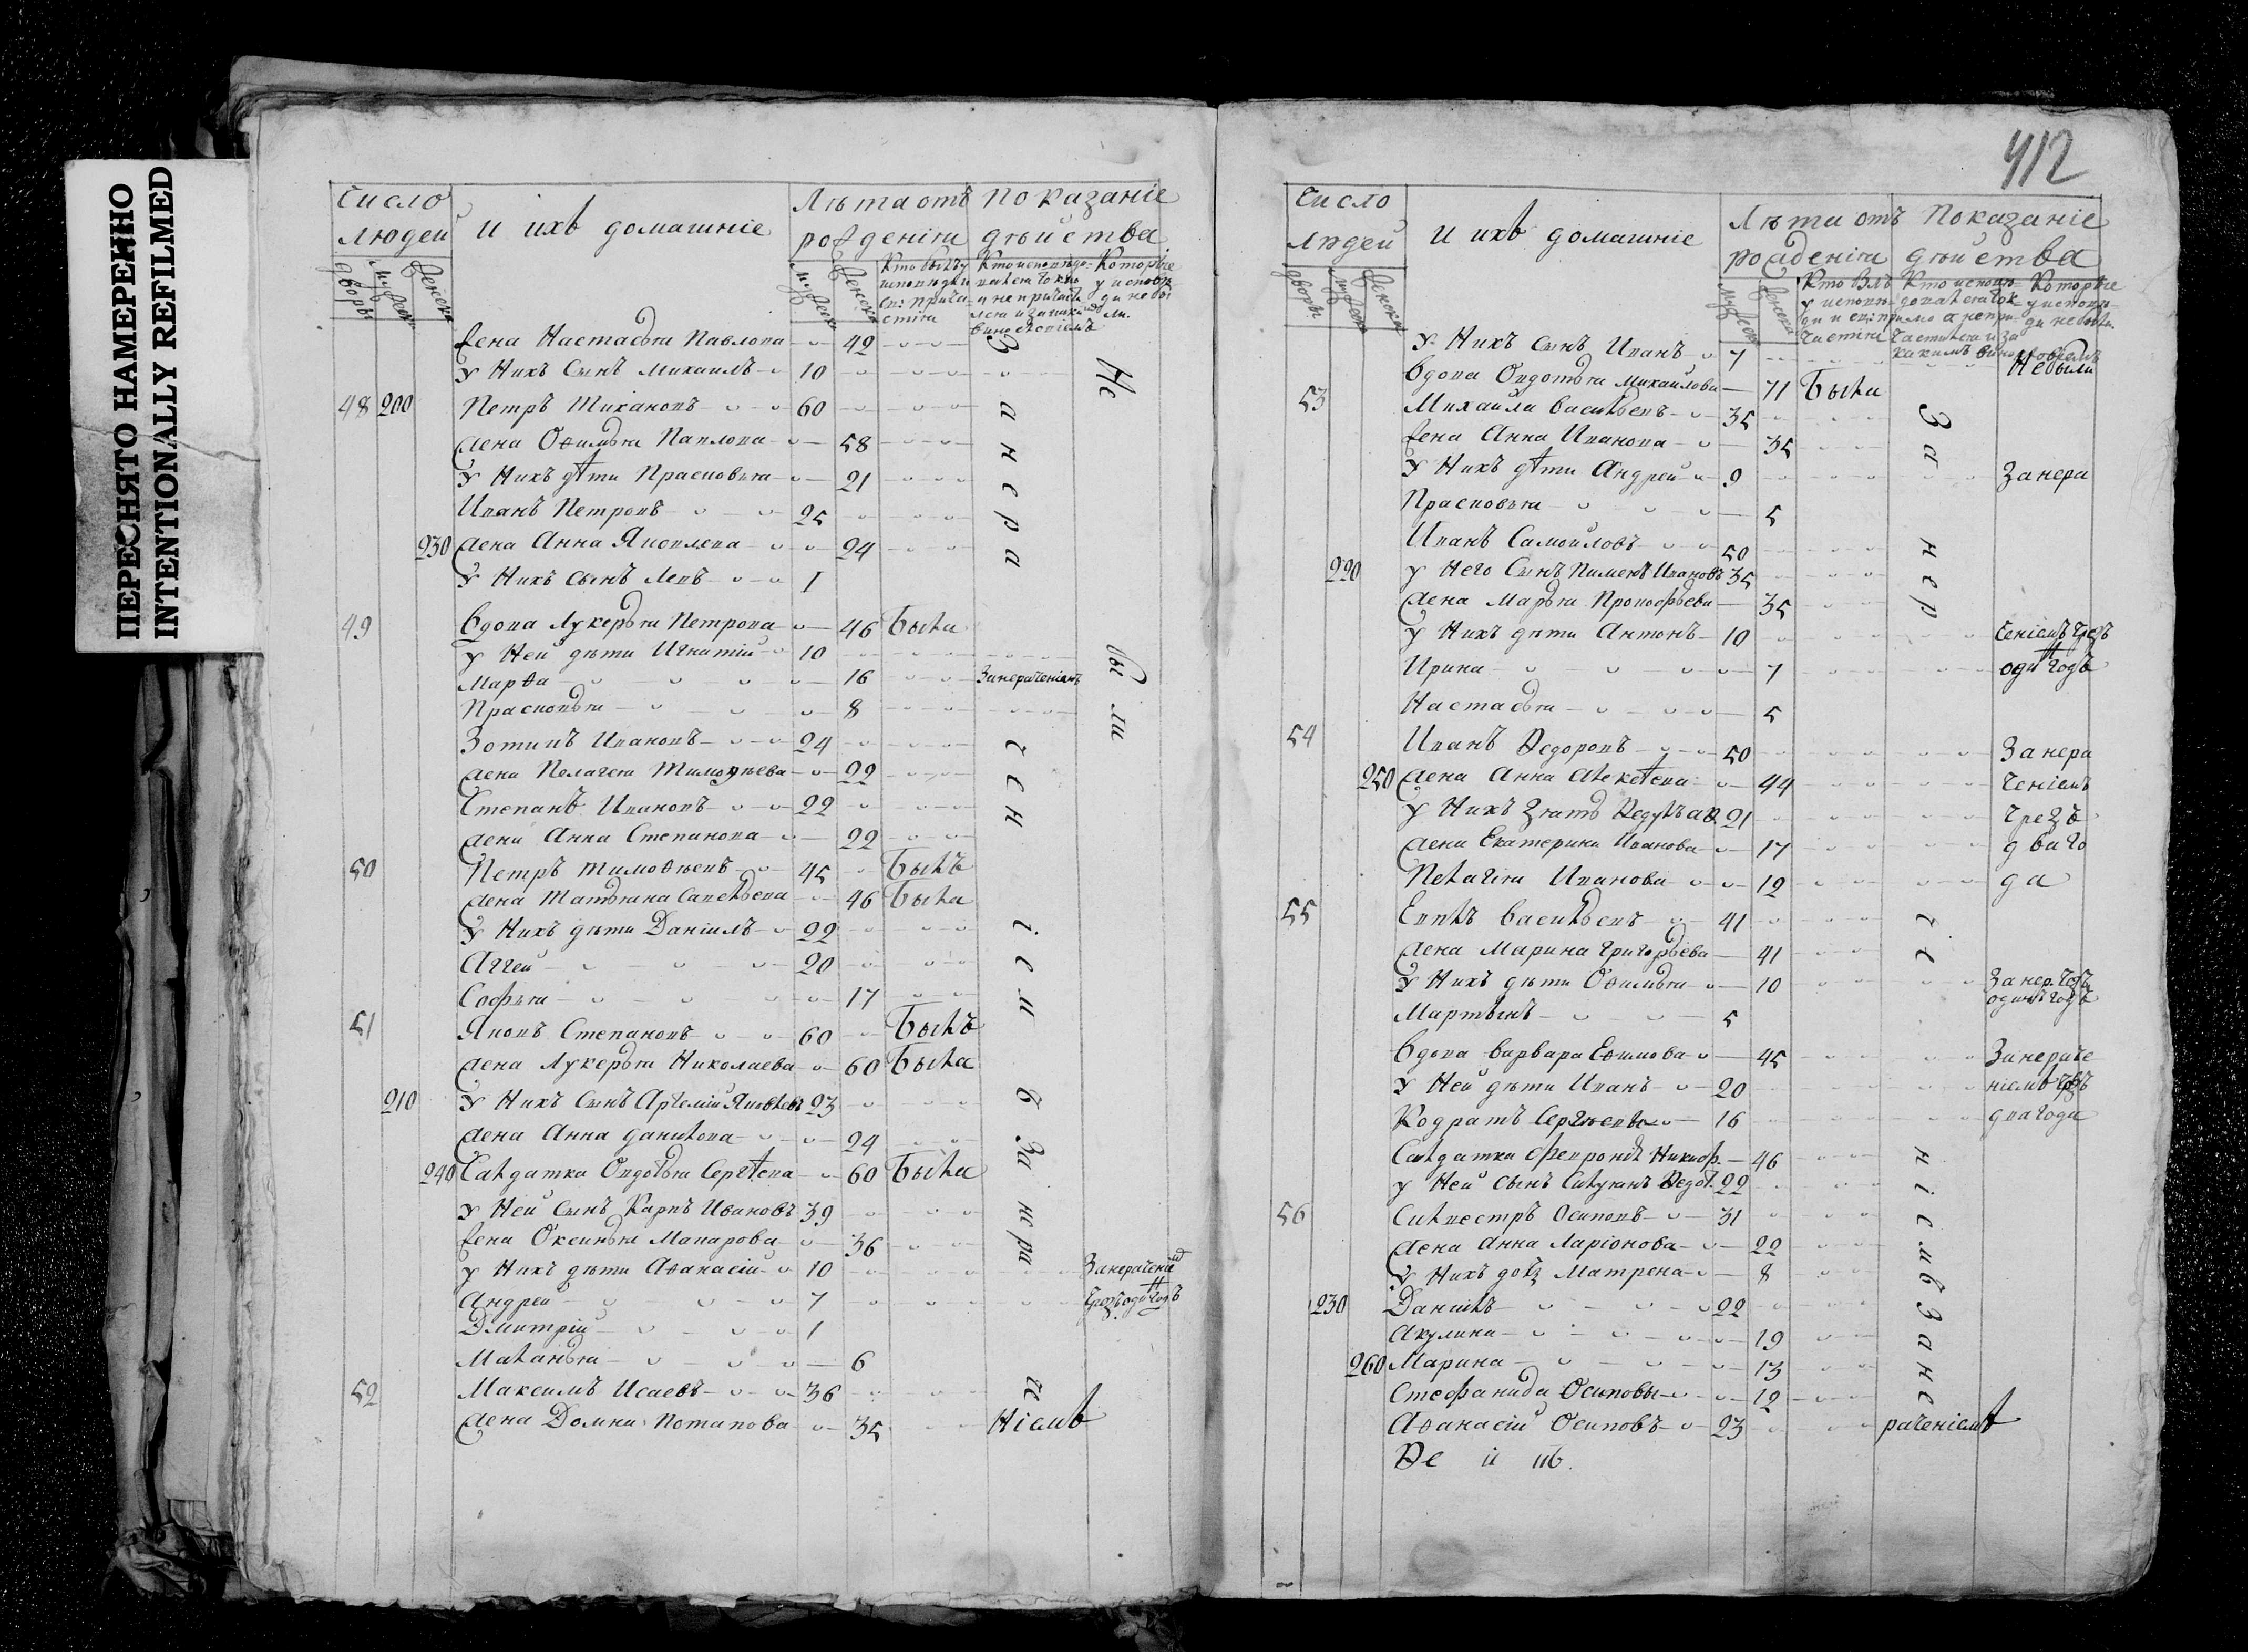 ПЕРЕСНЯТО НАМЕРЕННО
INTENTIONALLY REFILMED
412
Число людей и ихъ домашніе Лѣта отъ рожденія Показаніе дѣйства
дворы мужеск женска мужеск женска Кто былъ у исповѣди и св: причастія Кто исповѣдовался токмо а не причастился и за какимъ винословіемъ Которые у исповѣди не были
жена Настасья Павлова 42
у Нихъ Сынъ Михаилъ 10
48 200 Петръ Тихановъ 60
жена Офимья Павлова 58
у Нихъ дѣти Прасковья 21
Иванъ Петровъ 25
230 жена Анна Яковлева 24
у Нихъ сынъ Левъ 1
49 вдова Лукерья Петрова 46 Была
у Ней дѣти Игнатій 10
Марѳа 16 Занераченіемъ
Прасковья 8
Зотикъ Ивановъ 24
жена Пелагея Тимоѳѣева 22
Степанъ Ивановъ 22
жена Анна Степанова 22
50 Петръ Тимоѳѣевъ 45 Былъ
жена Татьяна Савельева 46 Была
у Нихъ дѣти Даніилъ 22
Аггей 20
Софья 17
51 Яковъ Степановъ 60 Былъ
жена Лукерья Николаева 60 Была
210 у Нихъ сынъ Артемій Яковлевъ 23
жена Анна Данилова 24
240 Салдатка Овдотья Сергѣева 60 Была
у Ней Сынъ Карпъ Ивановъ 39
жена Оксинья Макарова 36
у Нихъ дѣти Аѳанасій 10 Занераченіемъ
Андрей 7 чрезъ одинъ годъ
Дмитрій 1
Маланья 6
52 Максимъ Исаевъ 36
жена Домна Потапова 35 ніемъ
Не были
За нераченіемъ За нераче
Число людей и ихъ домашніе Лѣта отъ рожденія Показаніе дѣйства
дворы мужеск женска мужеск женска Кто былъ у исповѣди и св: причастія Кто исповѣдовался токмо а не причастился и за какимъ винословіемъ Которые у исповѣди не были
у Нихъ сынъ Иванъ 7 Небыли
вдова Овдотья Михайлова 71 Была
53 Михайла Васильевъ 35
жена Анна Иванова 35
у Нихъ дѣти Андрей 9 Занера
Прасковья 5
Иванъ Самойловъ 50
220 у Него Сынъ Пименъ Ивановъ 35
жена Марья Прокофьева 35
у Нихъ дѣти Антонъ 10 ченіемъ чрезъ
Ирина 7 одинъ годъ
Настасья 5
54 Иванъ Ѳедоровъ 50 Занера
250 жена Анна Алексѣева 44 ченіемъ
у Нихъ Зять Ѳедулъ 21 чрезъ
жена Екатерина Иванова 17 два го
Пелагія Иванова 12 да
55 Евплъ Васильевъ 41
жена Марина Григорьева 41
у Нихъ дѣти Офимья 10 Занер. чрзъ
Мартынъ 5 одинъ годъ
вдова Варвара Еѳимова 45 Занераче
у Ней дѣти Иванъ 20 ніемъ чрзъ
Кодратъ Сергѣевы 16 два года
Салдатка Февронья Никиф. 46
у Ней сынъ Ѳедот. 22
56 Силвестръ Осиповъ 31
жена Анна Ларіонова 22
у Нихъ дочь Матрена 8
230 Данилъ 22
Акулина 19
260 Марина 13
Стефанида Осиповы 12
Аѳанасій Осиповъ 23 раченіемъ
За нераченіемъ Зане